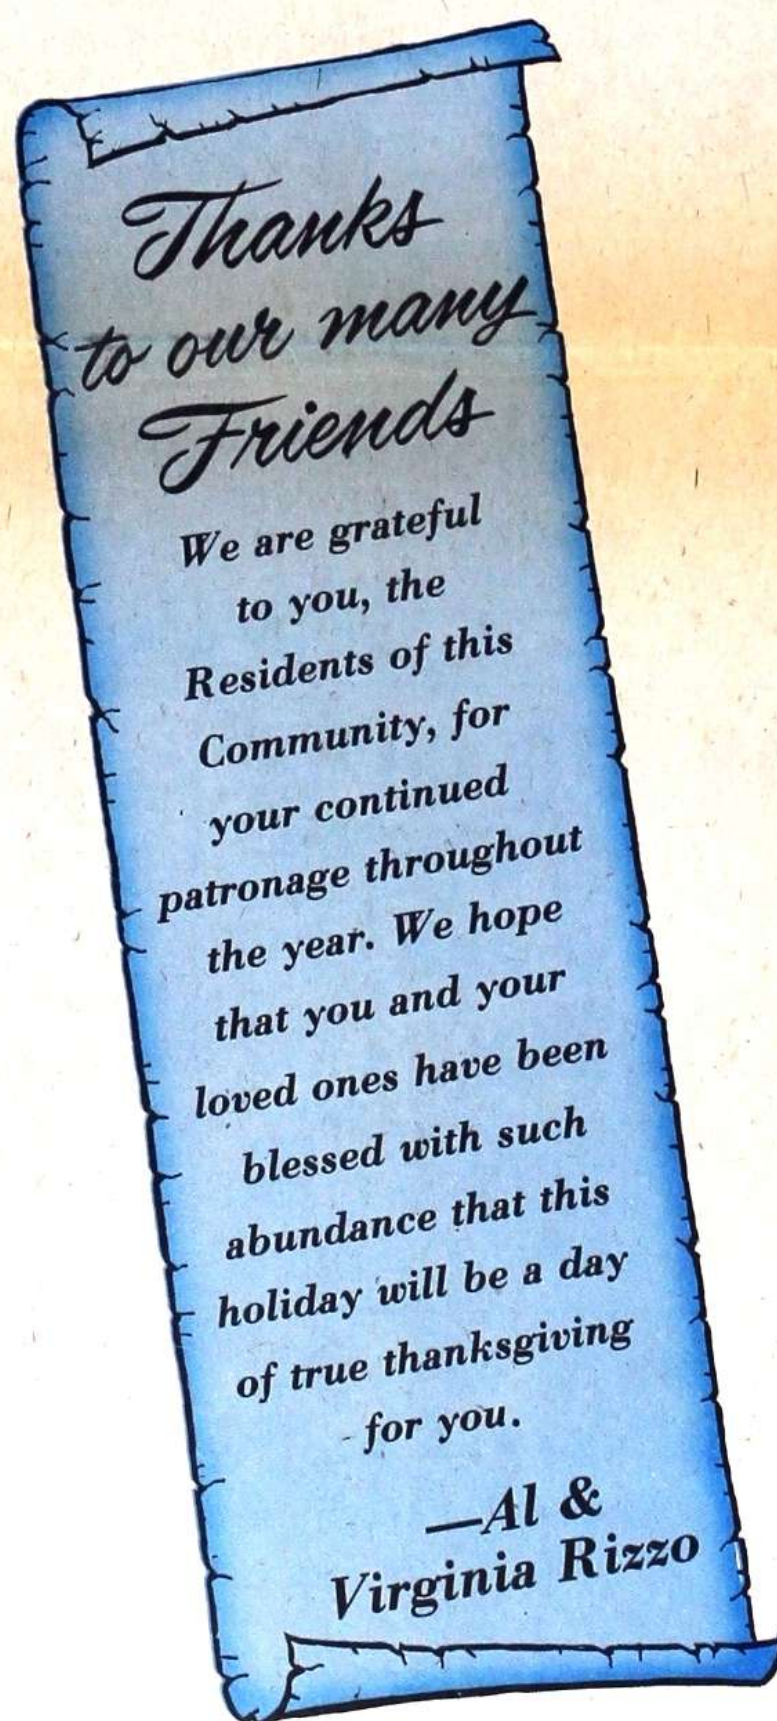 Thanks
to our many
Friends
We are grateful
to you, the
Residents of this
Community, for
your continued
patronage throughout
the year. We hope
that you and your
loved ones have been
blessed with such
abundance that this
holiday will be a day
of true thanksgiving
for you.
—Al &
Virginia Rizzo